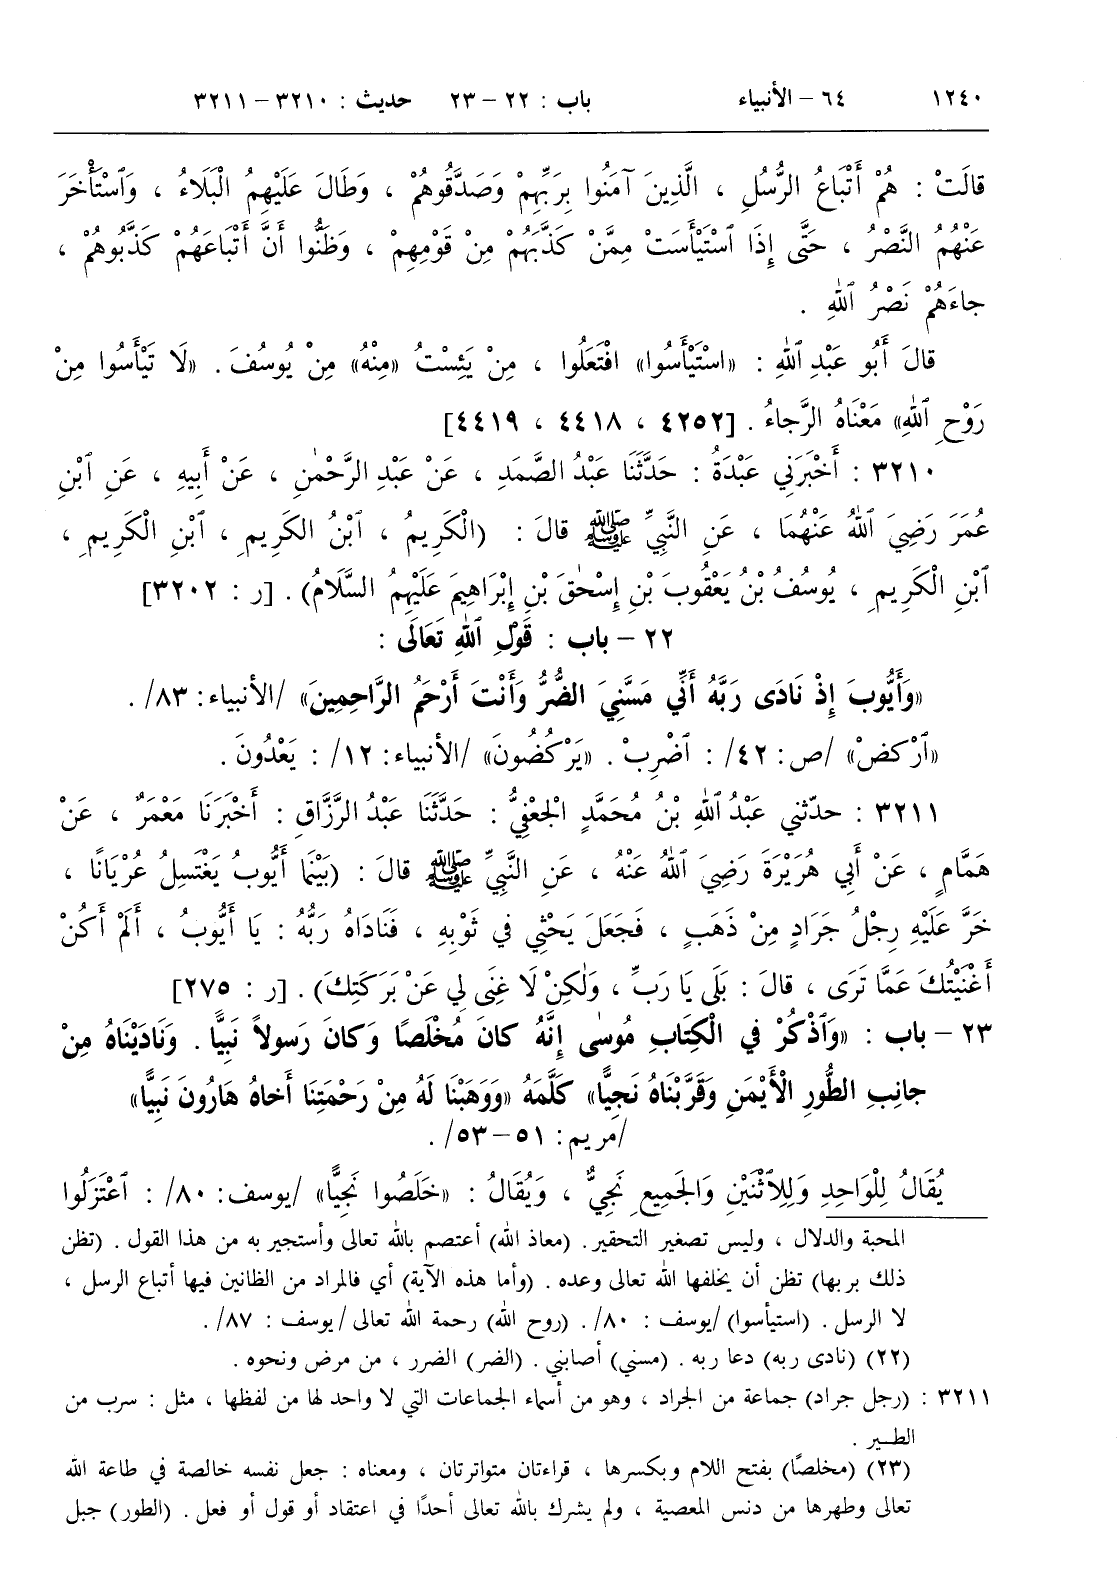 ١٢٤٠ ٦٤ – الأنبياء باب : ٢٢ – ٢٣ حديث : ٣٢١٠ – ٣٢١١
قالَتْ : هُمْ أَتْبَاعُ الرُّسُلِ ، الَّذِينَ آمَنُوا بِرَبِّهِمْ وَصَدَّقُوهُمْ ، وَطَالَ عَلَيْهِمُ الْبَلَاءُ ، وَٱسْتَأْخَرَ
عَنْهُمُ النَّصْرُ ، حَتَّى إِذَا ٱسْتَيْأَسَتْ مِمَّنْ كَذَّبَهُمْ مِنْ قَوْمِهِمْ ، وَظَنُّوا أَنَّ أَتْبَاعَهُمْ كَذَّبُوهُمْ ،
جاءَهُمْ نَصْرُ ٱللهِ .
قالَ أَبُو عَبْدِ ٱللهِ : «اسْتَيْأَسُوا» افْتَعَلُوا ، مِنْ يَئِسْتُ «مِنْهُ» مِنْ يُوسُفَ. «لَا تَيْأَسُوا مِنْ
رَوْحِ ٱللهِ» مَعْنَاهُ الرَّجاءُ . [٤٢٥٢ ، ٤٤١٨ ، ٤٤١٩]
٣٢١٠ : أَخْبَرَنِي عَبْدَةُ : حَدَّثَنَا عَبْدُ الصَّمَدِ ، عَنْ عَبْدِ الرَّحْمٰنِ ، عَنْ أَبِيهِ ، عَنِ ٱبْنِ
عُمَرَ رَضِيَ ٱللهُ عَنْهُمَا ، عَنِ النَّبِيِّ ﷺ قالَ : (الْكَرِيمُ ، ٱبْنُ الكَرِيمِ ، ٱبْنِ الْكَرِيمِ ،
ٱبْنِ الْكَرِيمِ ، يُوسُفُ بْنُ يَعْقُوبَ بْنِ إِسْحٰقَ بْنِ إِبْرَاهِيمَ عَلَيْهِمُ السَّلَامُ) . [ر : ٣٢٠٢]
٢٢ – باب : قَوْلِ ٱللهِ تَعَالَى :
«وَأَيُّوبَ إِذْ نَادَى رَبَّهُ أَنِّي مَسَّنِيَ الضُّرُّ وَأَنْتَ أَرْحَمُ الرَّاحِمِينَ» /الأنبياء: ٨٣/ .
«ٱرْكضْ» /ص: ٤٢/ : ٱضْرِبْ . «يَرْكُضُونَ» /الأنبياء: ١٢/ : يَعْدُونَ .
٣٢١١ : حدّثني عَبْدُ ٱللهِ بْنُ مُحَمَّدٍ الْجُعْفِيُّ : حَدَّثَنَا عَبْدُ الرَّزَّاقِ : أَخْبَرَنَا مَعْمَرٌ ، عَنْ
هَمَّامٍ ، عَنْ أَبِي هُرَيْرَةَ رَضِيَ ٱللهُ عَنْهُ ، عَنِ النَّبِيِّ ﷺ قالَ : (بَيْنَمَا أَيُّوبُ يَغْتَسِلُ عُرْيَانًا ،
خَرَّ عَلَيْهِ رِجْلُ جَرَادٍ مِنْ ذَهَبٍ ، فَجَعَلَ يَحْثِي في ثَوْبِهِ ، فَنَادَاهُ رَبُّهُ : يا أَيُّوبُ ، أَلَمْ أَكُنْ
أَغْنَيْتُكَ عَمَّا تَرَى ، قالَ : بَلَى يَا رَبِّ ، وَلٰكِنْ لَا غِنَى لِي عَنْ بَرَكَتِكَ) . [ر : ٢٧٥]
٢٣ – باب : «وَٱذْكُرْ في الْكِتَابِ مُوسٰى إِنَّهُ كانَ مُخْلَصًا وَكانَ رَسولاً نَبِيًّا . وَنَادَيْنَاهُ مِنْ
جانِبِ الطُّورِ الْأَيْمَنِ وَقَرَّبْنَاهُ نَجِيًّا» كَلَّمَهُ «وَوَهَبْنَا لَهُ مِنْ رَحْمَتِنَا أَخاهُ هَارُونَ نَبِيًّا»
/مريم: ٥١–٥٣/ .
يُقَالُ لِلْوَاحِدِ وَلِلِٱثْنَيْنِ وَالجَمِيعِ نَجِيٌّ ، وَيُقَالُ : «خَلَصُوا نَجِيًّا» /يوسف: ٨٠/ : ٱعْتَزَلُوا
المحبة والدلال ، وليس تصغير التحقير. (معاذ الله) أعتصم بالله تعالى وأستجير به من هذا القول . (تظن
ذلك بربها) تظن أن يخلفها الله تعالى وعده . (وأما هذه الآية) أي فالمراد من الظانين فيها أتباع الرسل ،
لا الرسل . (استيأسوا) /يوسف : ٨٠/ . (روح الله) رحمة الله تعالى /يوسف : ٨٧/ .
(٢٢) (نادى ربه) دعا ربه . (مسني) أصابني . (الضر) الضرر ، من مرض ونحوه .
٣٢١١ : (رجل جراد) جماعة من الجراد ، وهو من أسماء الجماعات التي لا واحد لها من لفظها ، مثل : سرب من
الطير .
(٢٣) (مخلصًا) بفتح اللام وبكسرها ، قراءتان متواترتان ، ومعناه : جعل نفسه خالصة في طاعة الله
تعالى وطهرها من دنس المعصية ، ولم يشرك بالله تعالى أحدًا في اعتقاد أو قول أو فعل . (الطور) جبل